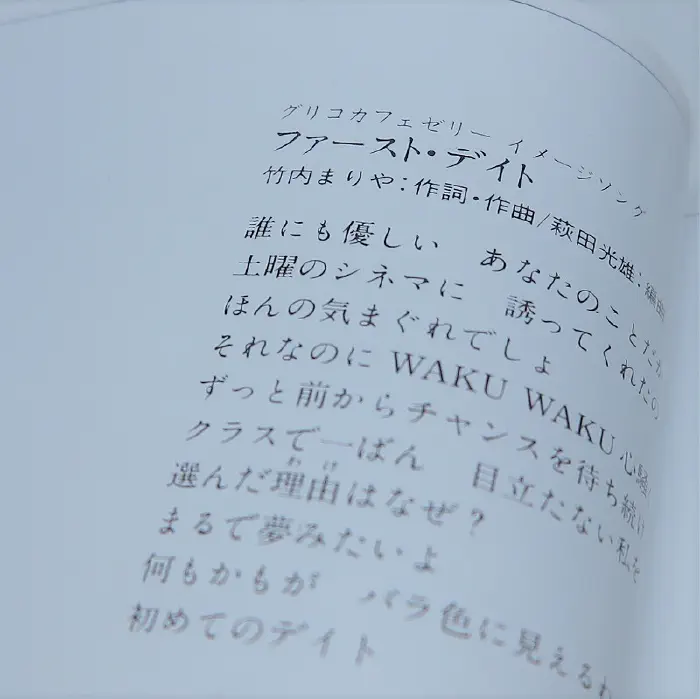 グリコカフェゼリー イメージソング
ファースト・デイト
竹内まりや：作詞・作曲/萩田光雄：編曲
誰にも優しい あなたのことだか
土曜のシネマに 誘ってくれたの
ほんの気まぐれでしょ
それなのに WAKU WAKU 心騒
ずっと前からチャンスを待ち続け
クラスで一ばん 目立たない私を
選んだ理由はなぜ？
わけ
まるで夢みたいよ
何もかもが バラ色に見えるわ
初めてのデイト